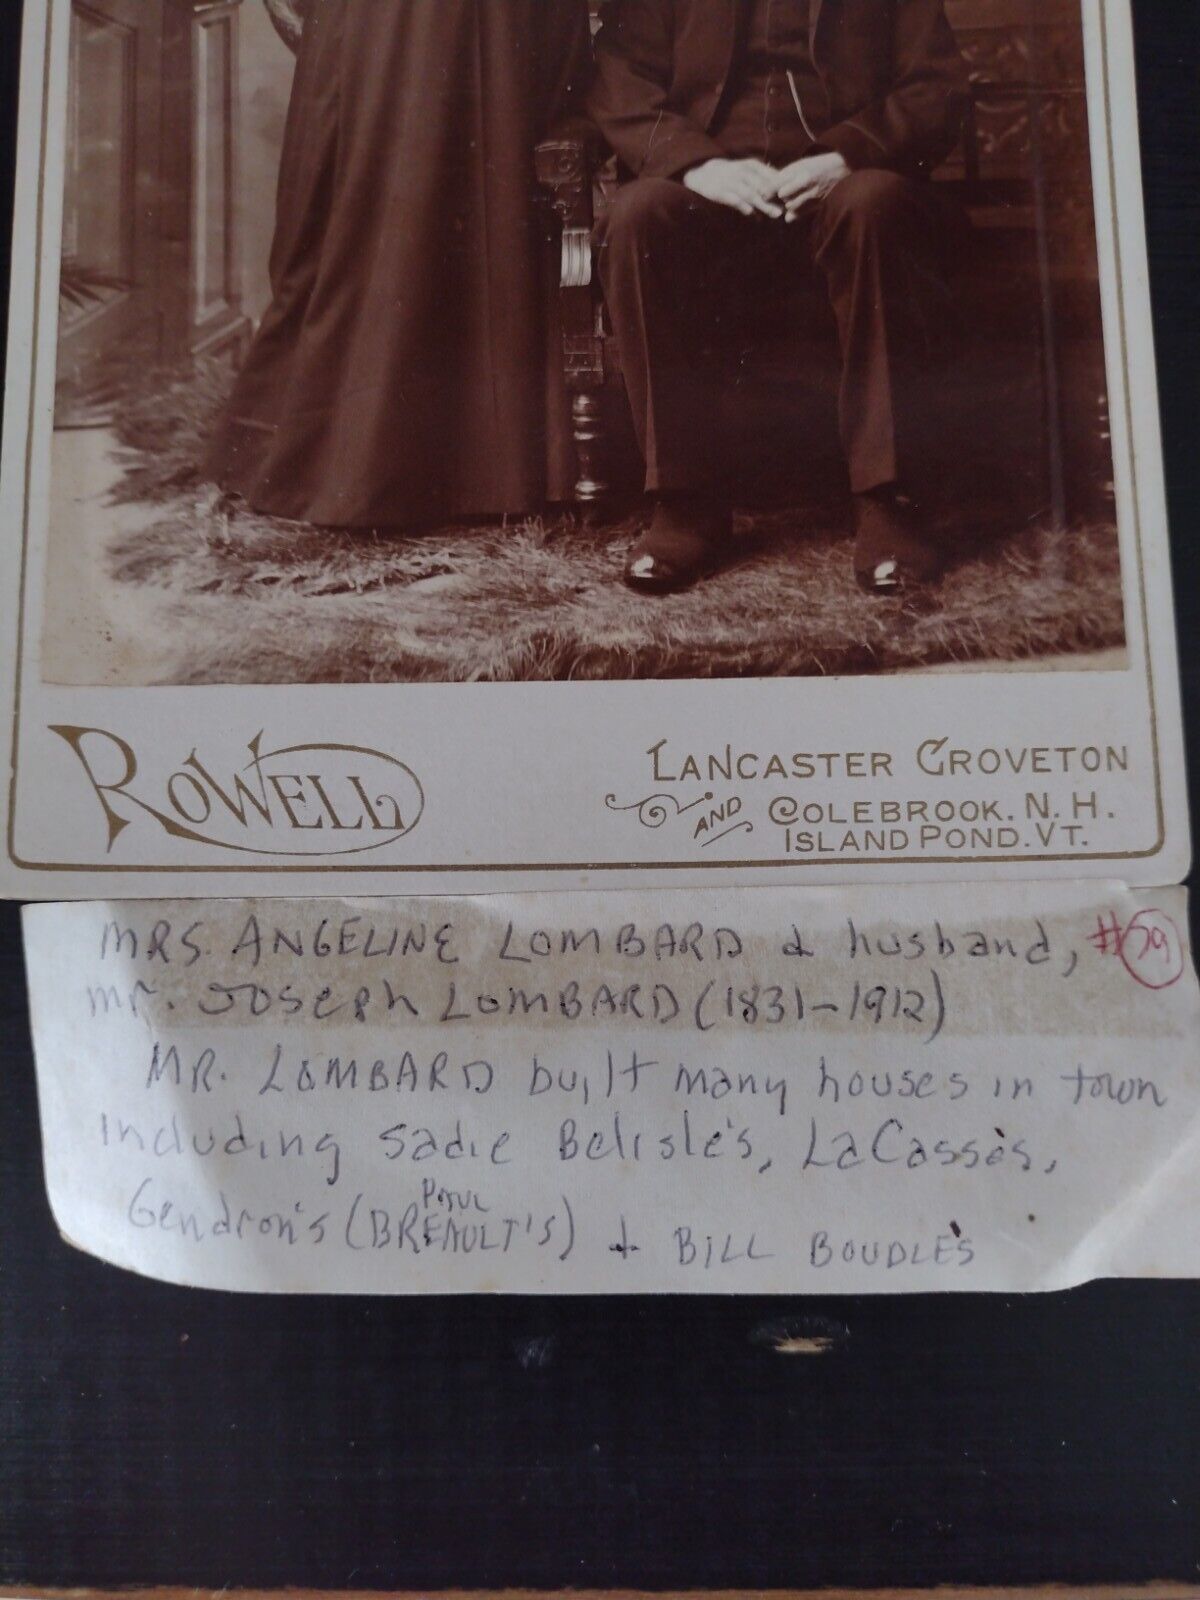 ROWELL
LANCASTER GROVETON
AND COLEBROOK. N. H.
ISLAND POND. VT.
MRS. ANGELINE LOMBARD & husband, #59
mr. Joseph LOMBARD (1831-1912)
MR. LOMBARD built many houses in town
including Sadie Belisle's, LaCasse's,
Gendron's (PAUL BREAULT'S) + BILL BOUDLE'S